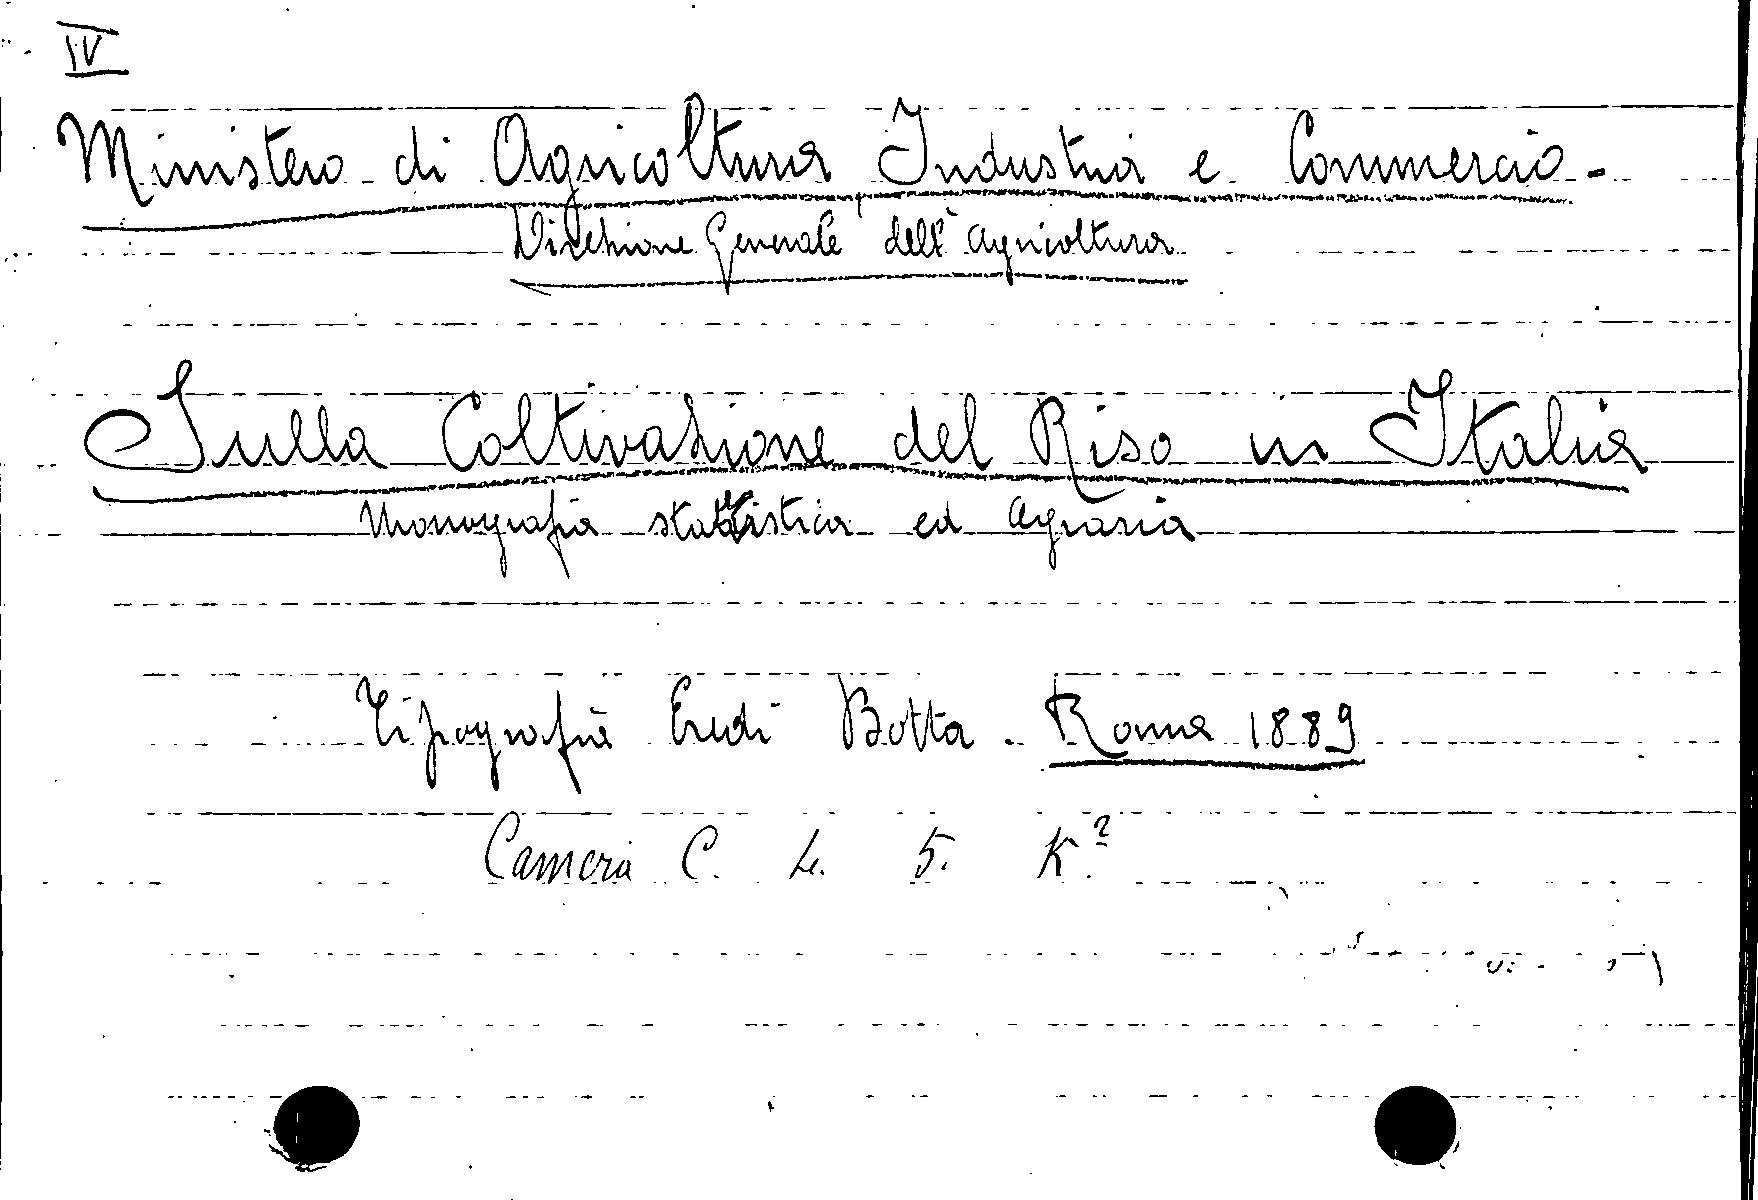 IV
Ministero di Agricoltura Industria e Commercio -
Direzione Generale dell'agricoltura
Sulla Coltivazione del Riso in Italia
Monografia statistica ed agraria
Tipografia Eredi Botta - Roma 1889
Camera C. 4. 5. K.²